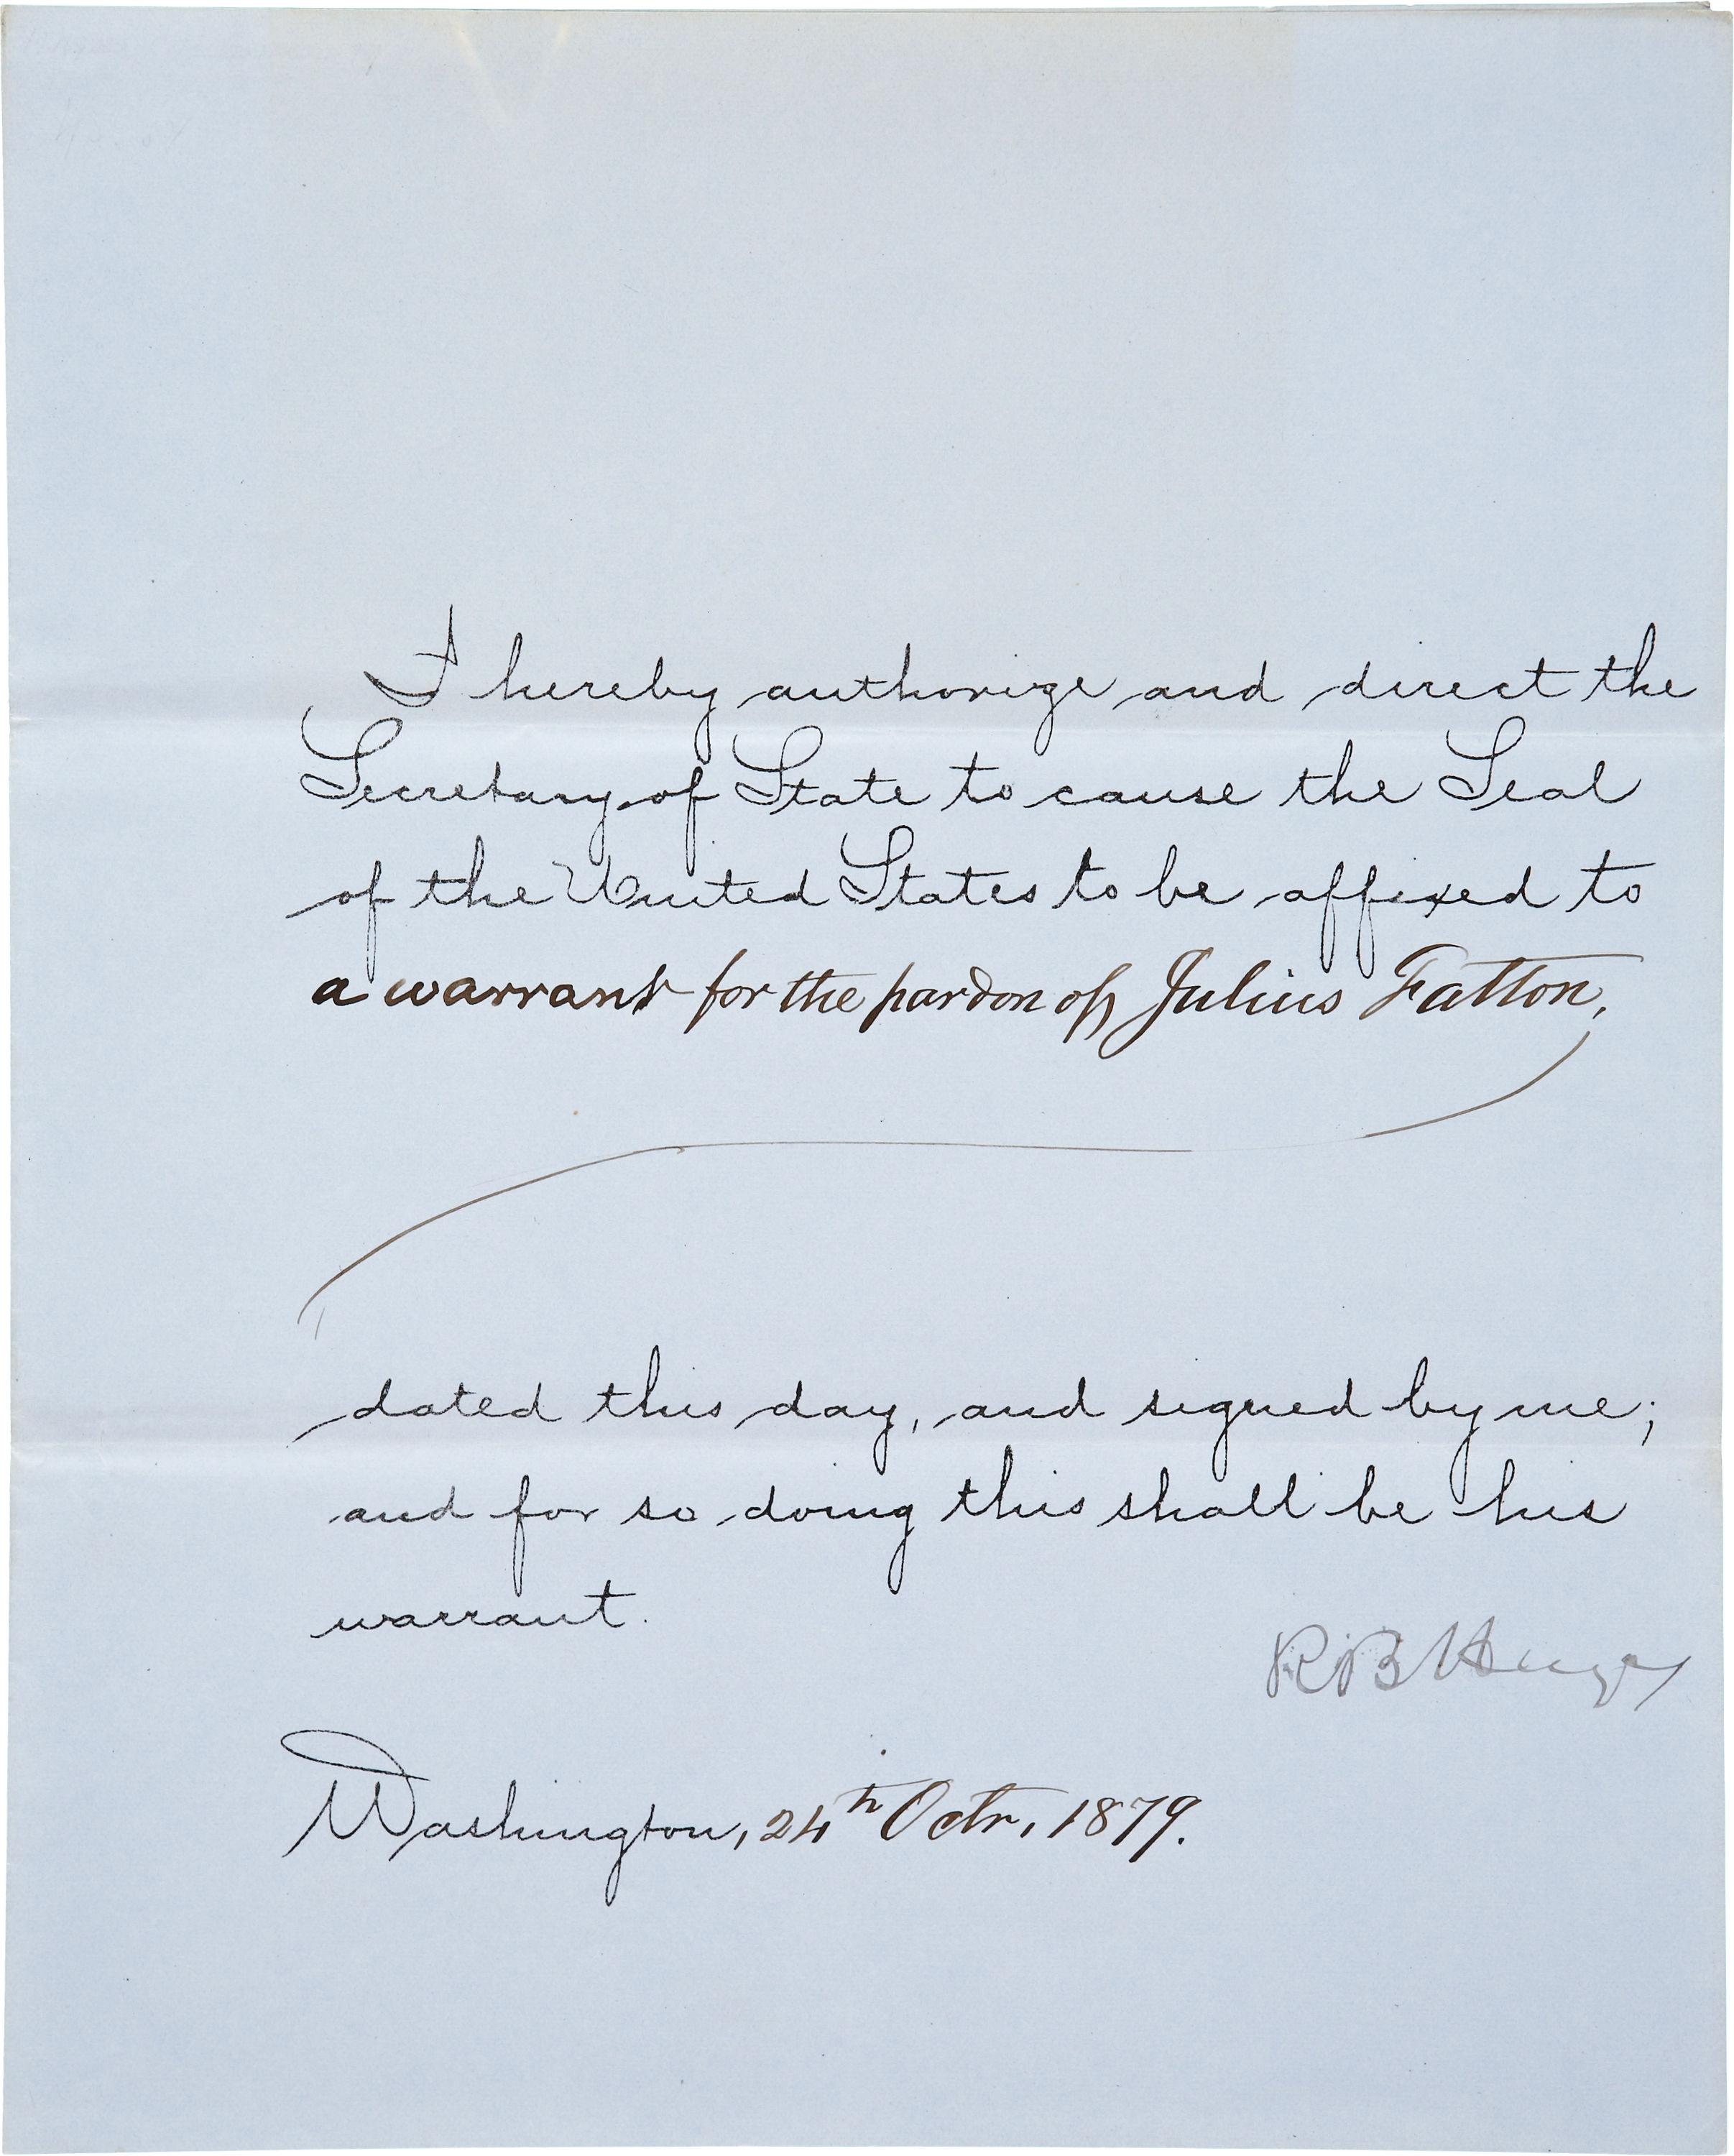 I hereby authorize and direct the
Secretary of State to cause the Seal
of the United States to be affixed to
a warrant for the pardon of Julius Fatton,
dated this day, and signed by me;
and for so doing this shall be his
warrant.
R B Hayes
Washington, 24th Octr, 1879.